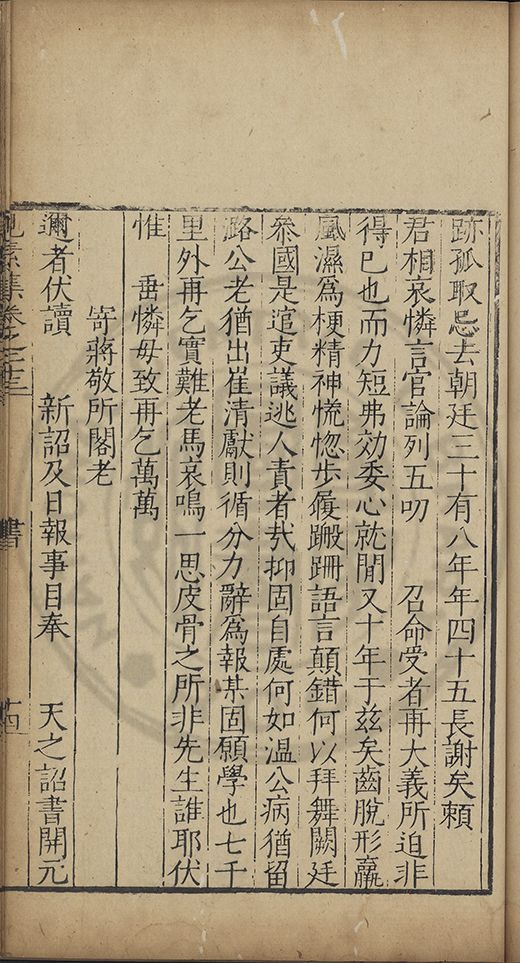 跡孤取忌去朝廷三十有八年年四十五長謝矣賴
君相哀憐言官論列五叨　召命受者再大義所迫非
得已也而力短弗効委心就閒又十年于兹矣齒脫形羸
風濕爲梗精神慌惚步履蹣跚語言顛錯何以拜舞闕廷
叅國是逭吏議逃人責者㢤抑固自處何如温公病猶留
路公老猶出崔清獻則循分力辭爲報某固願學也七千
里外再乞實難老馬哀鳴一思皮骨之所非先生誰耶伏
惟　垂憐毋致再乞萬萬
寄蔣敬所閣老
邇者伏讀　新詔及日報事目奉　天之詔書開元
見素集卷之二十三　書　十四